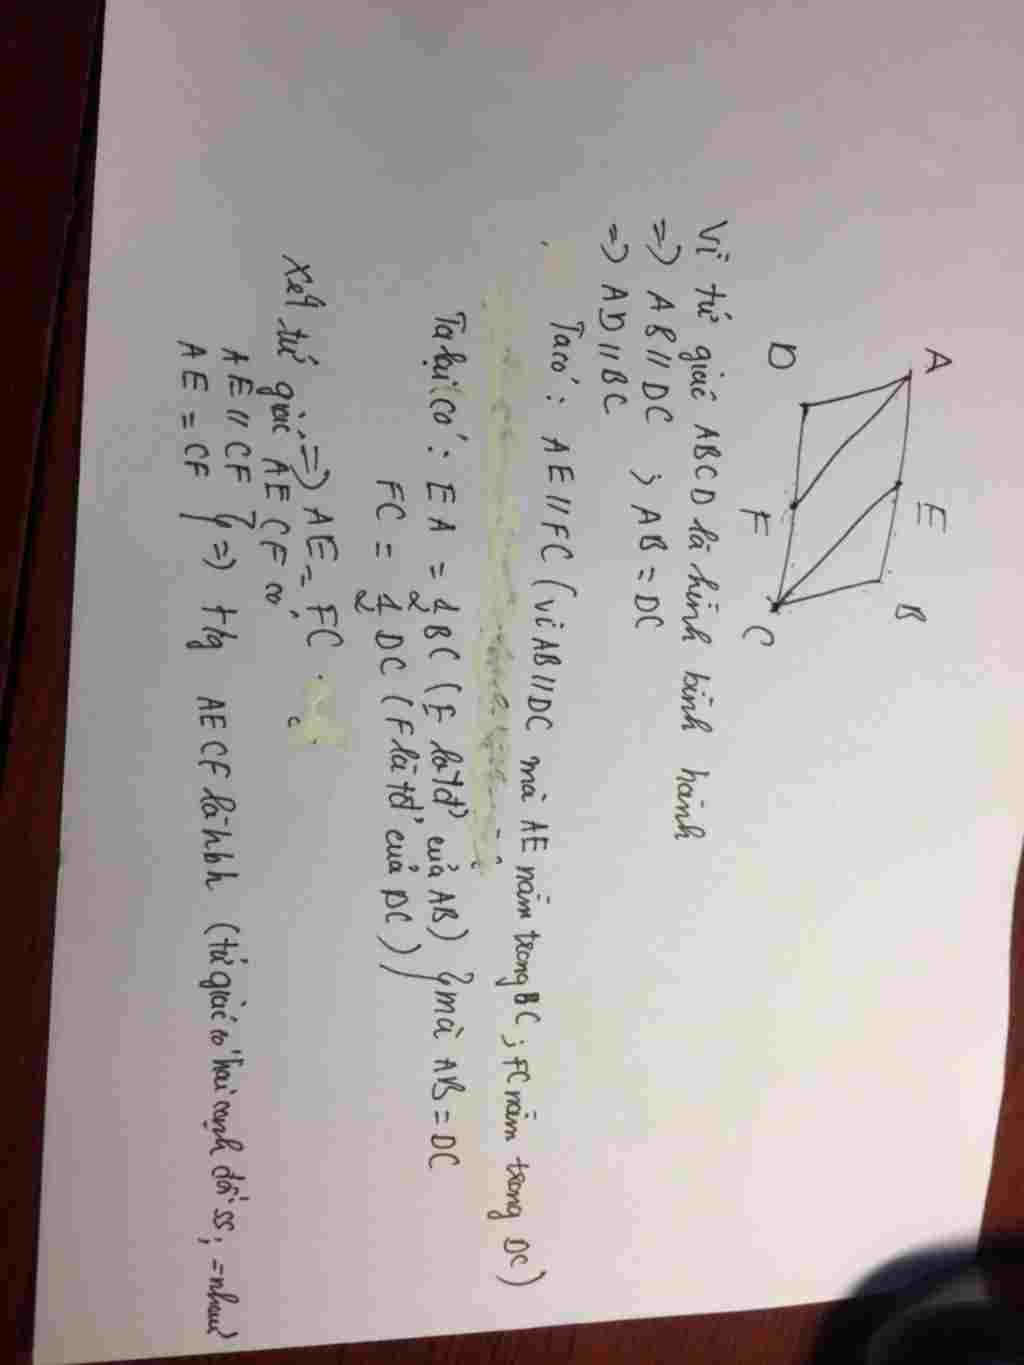 A E B
D F C
Vì tứ giác ABCD là hình bình hành
=> AB // DC ; AB = DC
=> AD // BC
Ta có : AE // FC ( vì AB // DC mà AE nằm trong BC ; FC nằm trong DC )
Ta lại có : EA = 1/2 BC ( E là tđ của AB ) } mà AB = DC
FC = 1/2 DC ( F là tđ của DC )
=> AE = FC .
Xét tứ giác AECF có
AE // CF } => t/g AECF là hbh ( tứ giác có hai cạnh đối ss , = nhau )
AE = CF